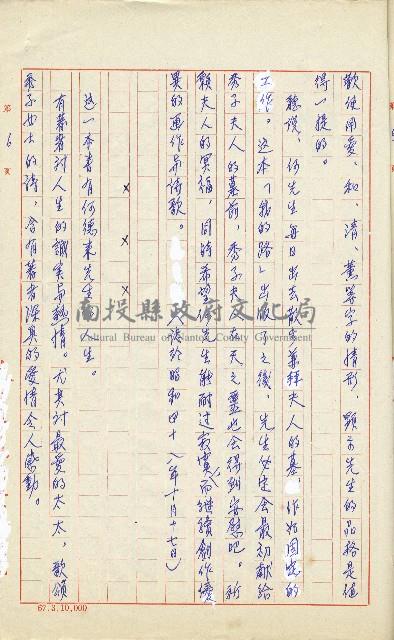 歡使用愛、和、清、薰等字的情形，顯示先生的品格是值
得一提的。
聽說，何先生每日出去散步兼拜夫人的墓，作的
工作。這本「我的路」出版了之後，先生必定會最初獻給
秀子夫人的墓前，秀子夫人在天之靈也會得到安慰吧。祈
願夫人的冥福，同時希望何先生能耐过寂寞而継續創作優
異的画作与诗歌。
人誌於昭和四十八年十月十七日）
×
×
×
这一本書有何德来先生的人生。
有著者对人生的誠実与熱情。尤其对最愛的太太，歌頌
秀子女士的诗，含有著者深真的愛情令人感動。
第 6 頁
南投縣政府文化局
Cultural Bureau of Nantou County Government
67.3.10,000